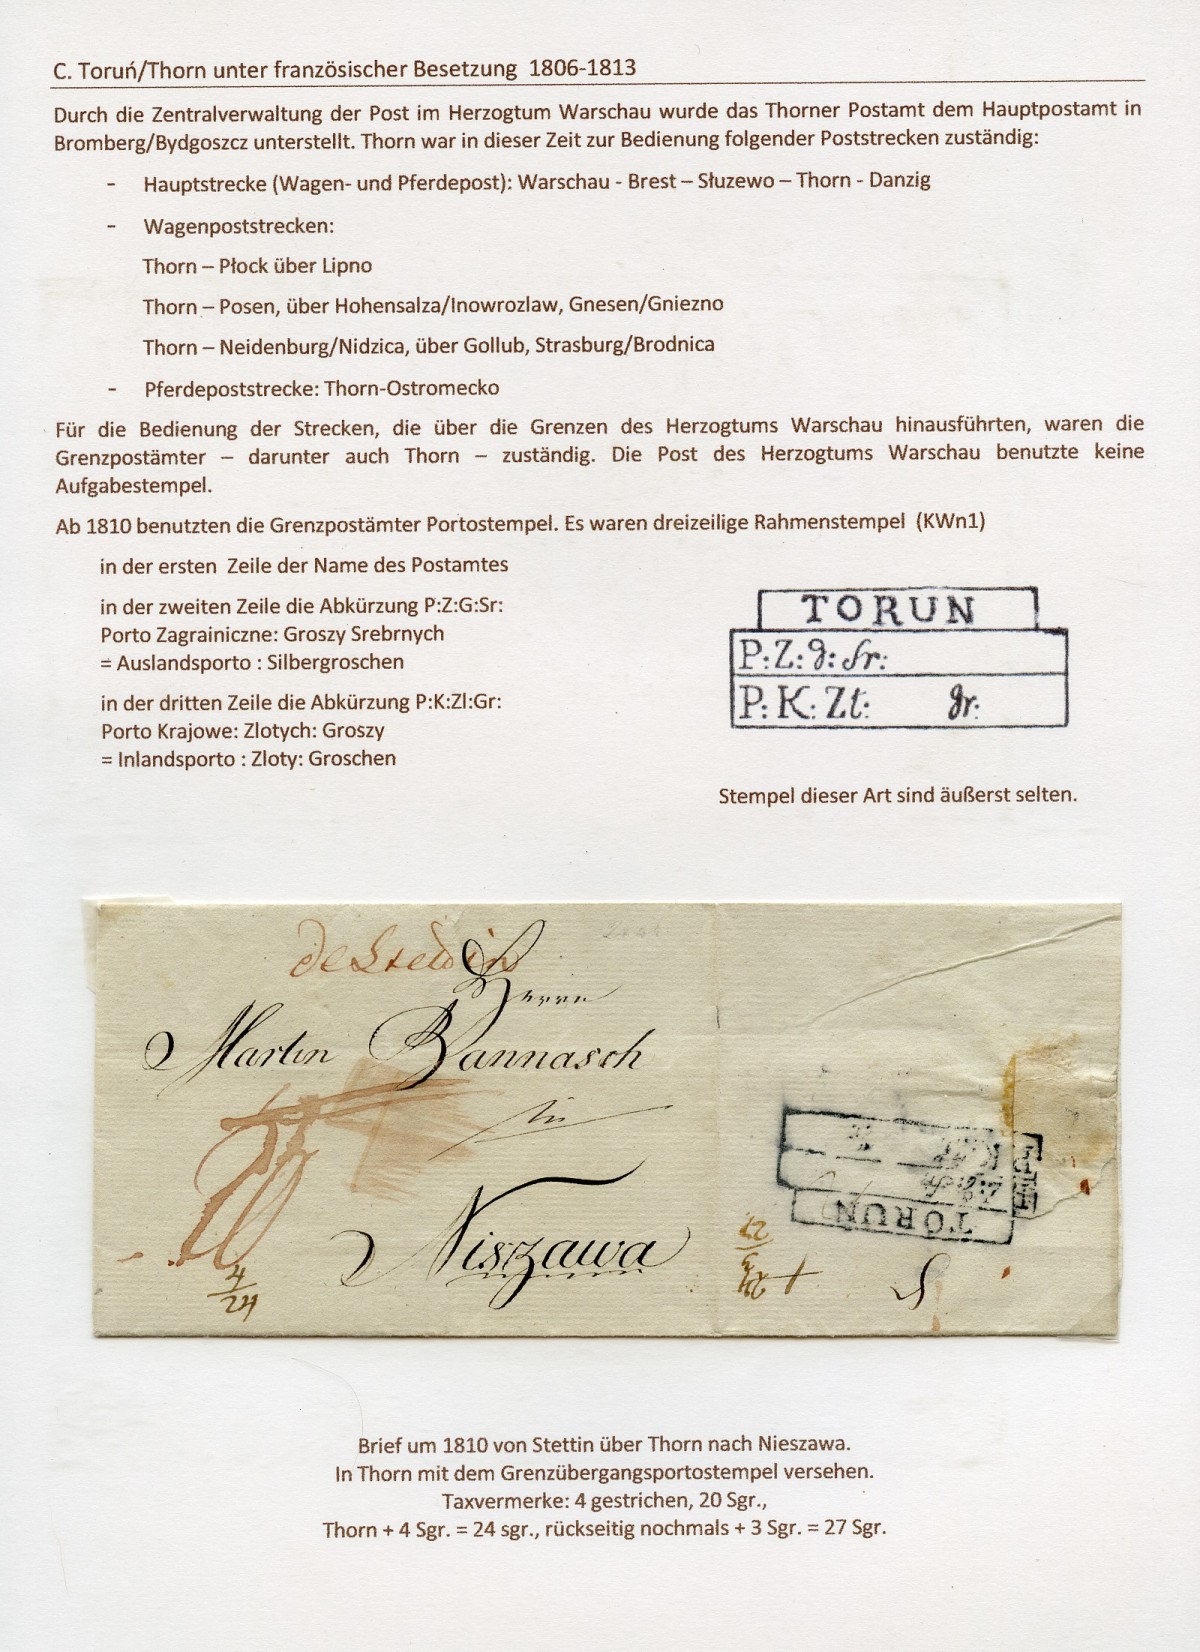 C. Toruń/Thorn unter französischer Besetzung 1806-1813
Durch die Zentralverwaltung der Post im Herzogtum Warschau wurde das Thorner Postamt dem Hauptpostamt in
Bromberg/Bydgoszcz unterstellt. Thorn war in dieser Zeit zur Bedienung folgender Poststrecken zuständig:
- Hauptstrecke (Wagen- und Pferdepost): Warschau - Brest – Słuzewo – Thorn - Danzig
- Wagenpoststrecken:
Thorn – Płock über Lipno
Thorn – Posen, über Hohensalza/Inowrozlaw, Gnesen/Gniezno
Thorn – Neidenburg/Nidzica, über Gollub, Strasburg/Brodnica
- Pferdepoststrecke: Thorn-Ostromecko
Für die Bedienung der Strecken, die über die Grenzen des Herzogtums Warschau hinausführten, waren die
Grenzpostämter – darunter auch Thorn – zuständig. Die Post des Herzogtums Warschau benutzte keine
Aufgabestempel.
Ab 1810 benutzten die Grenzpostämter Portostempel. Es waren dreizeilige Rahmenstempel (KWn1)
in der ersten Zeile der Name des Postamtes
in der zweiten Zeile die Abkürzung P:Z:G:Sr:
Porto Zagrainiczne: Groszy Srebrnych
= Auslandsporto : Silbergroschen
in der dritten Zeile die Abkürzung P:K:Zl:Gr:
Porto Krajowe: Zlotych: Groszy
= Inlandsporto : Zloty: Groschen
TORUN
P: Z: g: Sr:
P: K: Zt: gr:
Stempel dieser Art sind äußerst selten.
de Stettin
Herrn
Martin Bannasch
in
Niszawa
4
24
TORUN
27
3
24
Brief um 1810 von Stettin über Thorn nach Nieszawa.
In Thorn mit dem Grenzübergangsportostempel versehen.
Taxvermerke: 4 gestrichen, 20 Sgr.,
Thorn + 4 Sgr. = 24 sgr., rückseitig nochmals + 3 Sgr. = 27 Sgr.